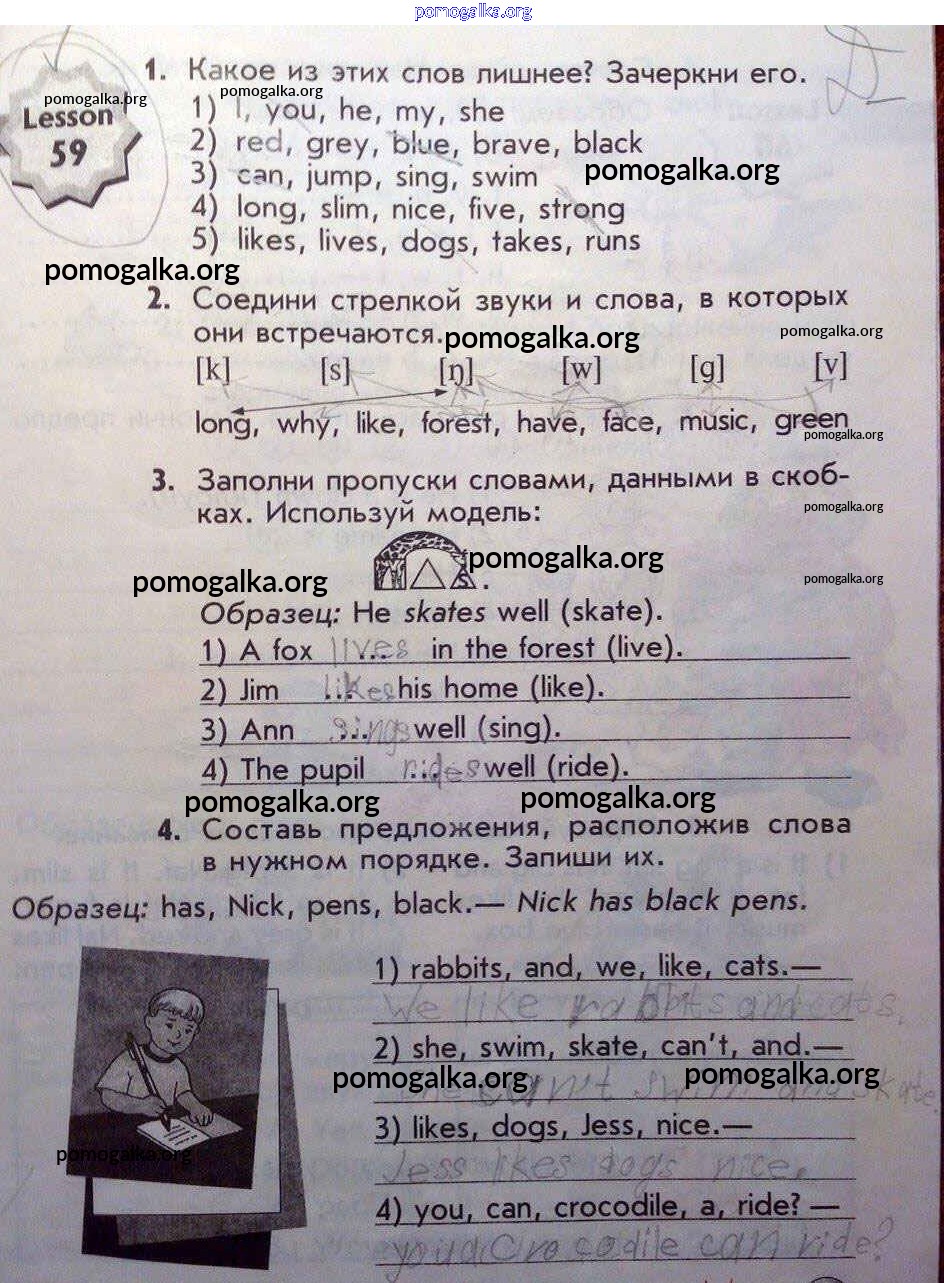 pomogalka.org
1. Какое из этих слов лишнее? Зачеркни его.
pomogalka.org
pomogalka.org
Lesson
59
1) I, you, he, my, she
2) red, grey, blue, brave, black
3) can, jump, sing, swim
pomogalka.org
4) long, slim, nice, five, strong
5) likes, lives, dogs, takes, runs
pomogalka.org
2. Соедини стрелкой звуки и слова, в которых
они встречаются.
pomogalka.org
pomogalka.org
[k] [s] [ŋ] [w] [g] [v]
long, why, like, forest, have, face, music, green
pomogalka.org
3. Заполни пропуски словами, данными в скоб-
ках. Используй модель:
pomogalka.org
pomogalka.org
pomogalka.org
pomogalka.org
S.
Образец: He skates well (skate).
1) A fox lives in the forest (live).
2) Jim likes his home (like).
3) Ann sings well (sing).
4) The pupil rides well (ride).
pomogalka.org
pomogalka.org
4. Составь предложения, расположив слова
в нужном порядке. Запиши их.
Образец: has, Nick, pens, black.— Nick has black pens.
1) rabbits, and, we, like, cats.—
We like rabbits and cats.
2) she, swim, skate, can't, and.—
pomogalka.org
pomogalka.org
She can't swim and skate.
3) likes, dogs, Jess, nice.—
pomogalka.org
Jess likes dogs nice.
4) you, can, crocodile, a, ride? —
you a Crocodile can ride?